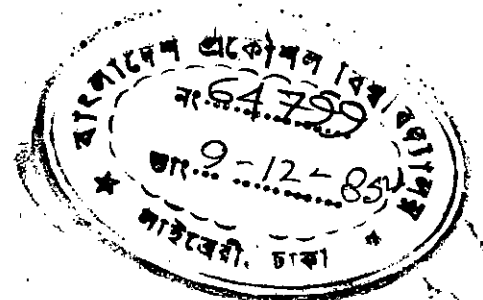 বাংলাদেশ প্রকৌশল বিশ্ববিদ্যালয়
নং...64799
তাং...9-12-85
লাইব্রেরী, ঢাকা